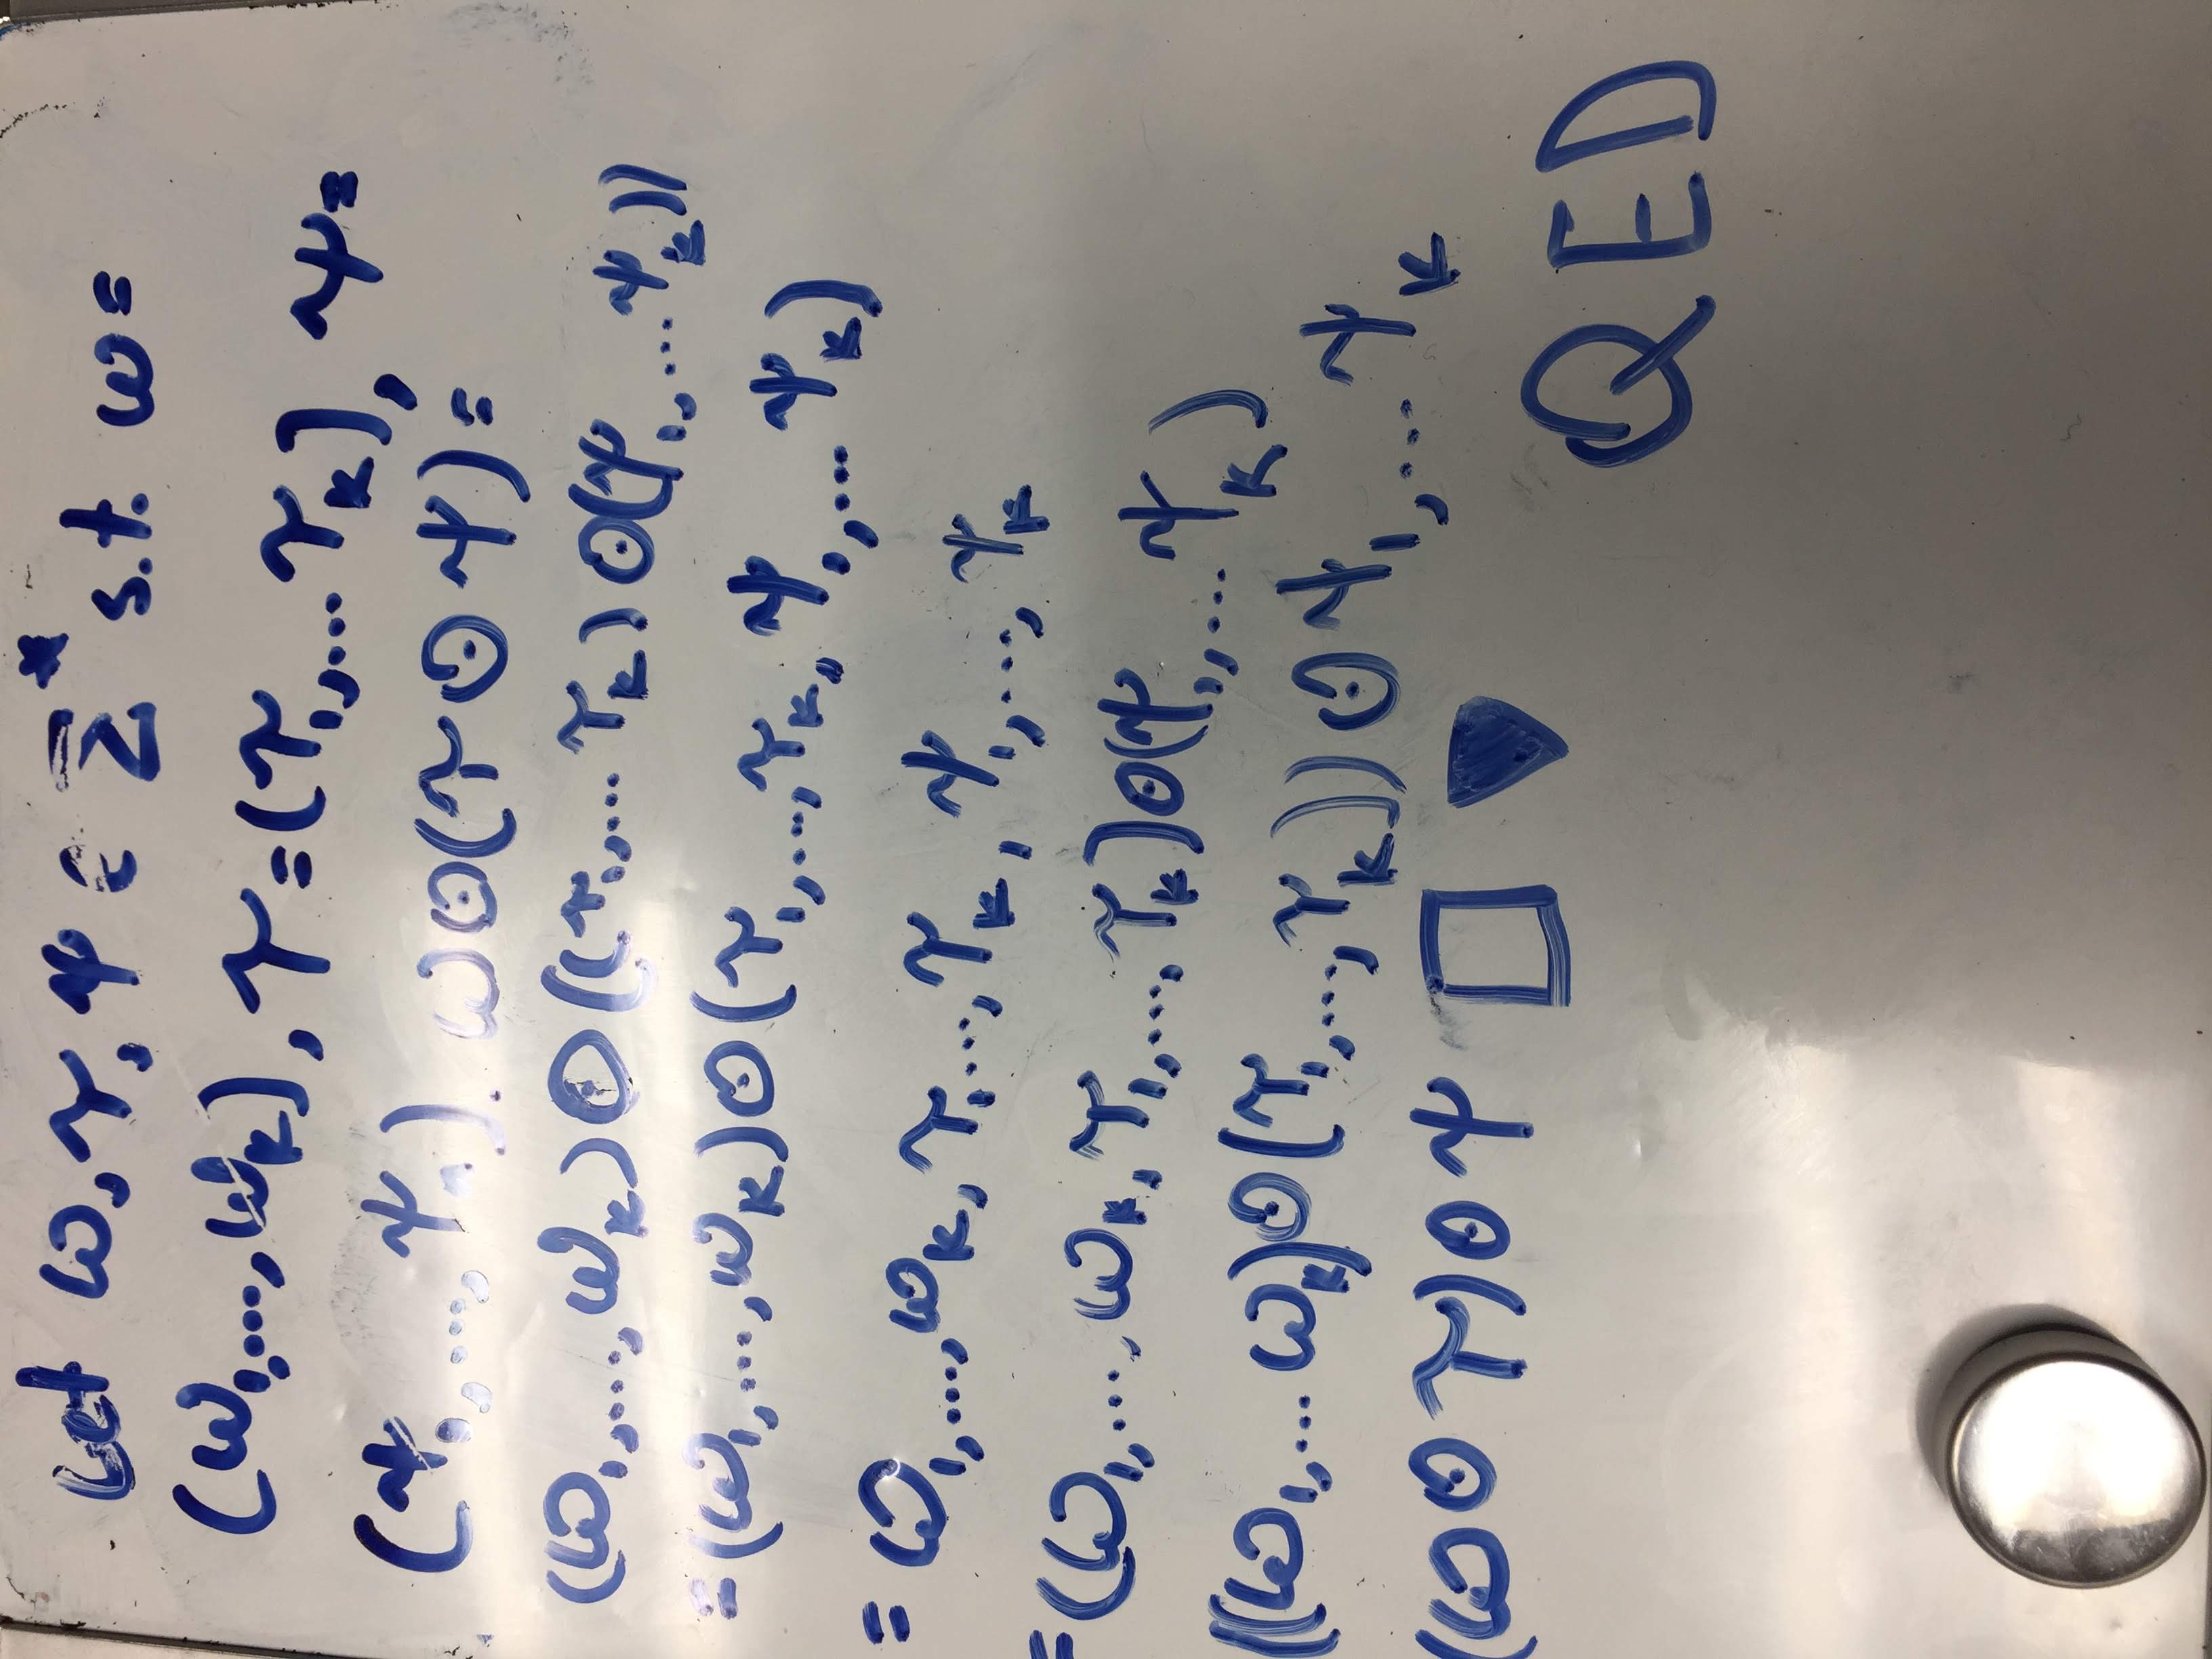 Let ω, τ, ψ ∈ Σ* s.t. ω=
(ω₁,...,ωₖ), τ=(τ₁,...τₖ), ψ=
(ψ₁,...,ψ). ω⊙(τ⊙ψ)=
(ω₁,...,ωₖ)⊙((τ₁,...τₖ)⊙(ψ₁,...ψₖ))
=(ω₁,...,ωₖ)⊙(τ₁,...,τₖ,ψ₁,...ψₖ)
=ω₁,...,ωₖ,τ₁...,τₖ,ψ₁,...,ψₖ
=(ω₁,...,ωₖ,τ₁,...,τₖ)⊙(ψ₁,...ψₖ)
((ω₁,...ωₖ)⊙(τ₁,...,τₖ))⊙ψ₁,...ψₖ
(ω⊙τ)⊙ψ □ ▼
QED